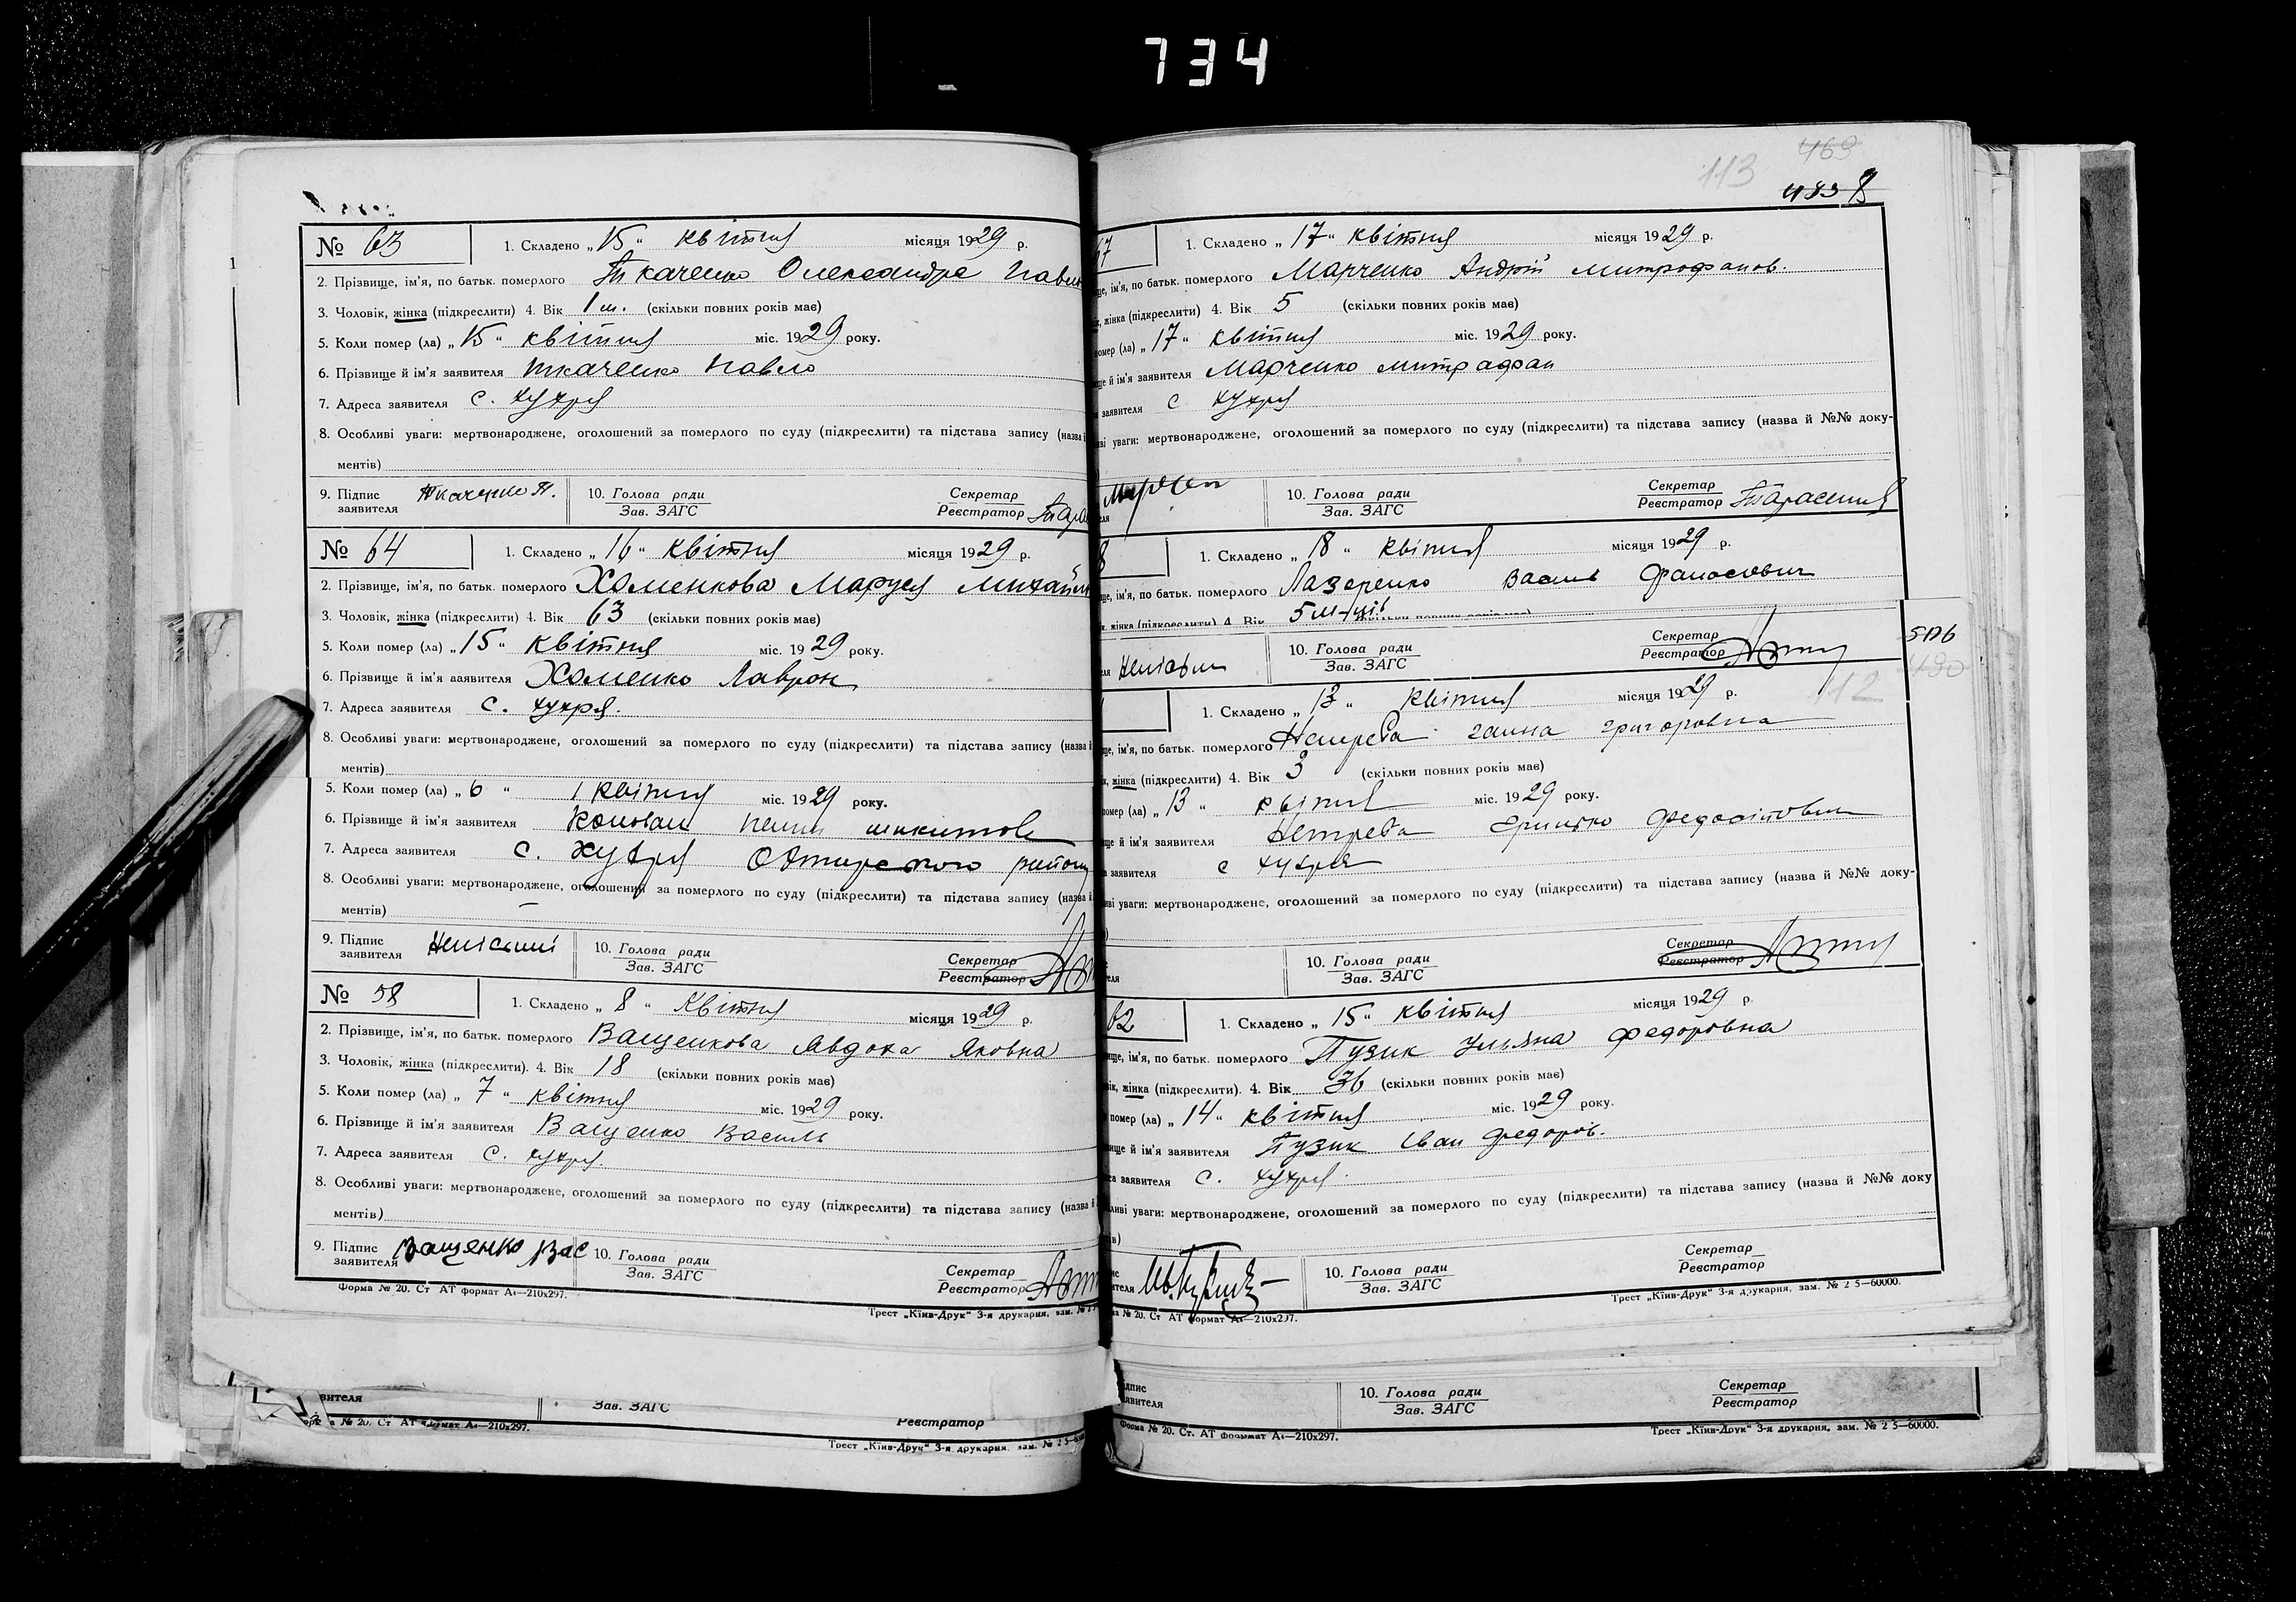 734
№ 63 1. Складено „15“ квітня місяця 1929 р.
2. Прізвище, ім'я, по батьк. померлого Ткаченко Олександра Павл
3. Чоловік, жінка (підкреслити) 4. Вік 1 м. (скільки повних років має)
5. Коли помер (ла) „15“ квітня міс. 1929 року.
6. Прізвище й ім'я заявителя Ткаченко Павло
7. Адреса заявителя с. Хухря
8. Особливі уваги: мертвонароджене, оголошений за померлого по суду (підкреслити) та підстава запису (назва
ментів)
9. Підпис заявителя Ткаченко П. 10. Голова ради Зав. ЗАГС Секретар Реєстратор
№ 64 1. Складено „16“ квітня місяця 1929 р.
2. Прізвище, ім'я, по батьк. померлого Хоменкова Маруся Михайл
3. Чоловік, жінка (підкреслити) 4. Вік 63 (скільки повних років має)
5. Коли помер (ла) „15“ квітня міс. 1929 року.
6. Прізвище й ім'я заявителя Хоменко Лаврон
7. Адреса заявителя с. Хухря.
8. Особливі уваги: мертвонароджене, оголошений за померлого по суду (підкреслити) та підстава запису (назва
ментів)
5. Коли помер (ла) „6“ квітня міс. 1929 року.
6. Прізвище й ім'я заявителя
7. Адреса заявителя с. Хухря Охтирського району
8. Особливі уваги: мертвонароджене, оголошений за померлого по суду (підкреслити) та підстава запису (назва
ментів) —
9. Підпис заявителя 10. Голова ради Зав. ЗАГС Секретар Реєстратор
№ 58 1. Складено „8“ Квітня місяця 1929 р.
2. Прізвище, ім'я, по батьк. померлого Ващенкова Явдоха Яковна
3. Чоловік, жінка (підкреслити). 4. Вік 18 (скільки повних років має)
5. Коли помер (ла) „7“ квітня міс. 1929 року.
6. Прізвище й ім'я заявителя Ващенко Василь
7. Адреса заявителя с. Хухря.
8. Особливі уваги: мертвонароджене, оголошений за померлого по суду (підкреслити) та підстава запису (назва
ментів)
9. Підпис заявителя Ващенко Вас 10. Голова ради Зав. ЗАГС Секретар Реєстратор
Форма № 20. Ст АТ формат А4—210х297.
Трест „Київ-Друк“ 3-я друкарня, зам. №
вителя Зав. ЗАГС Реєстратор
№ 20. Ст АТ формат А4—210х297.
Трест „Київ-Друк“ 3-я друкарня, зам. № 2 5—60
113 469
483
67 1. Складено „17“ квітня місяця 1929 р.
ім'я, по батьк. померлого Марченко Андрій Митрофанов.
жінка (підкреслити) 4. Вік 5 (скільки повних років має)
помер (ла) „17“ квітня міс. 1929 року.
й ім'я заявителя Марченко Митрафан
заявителя с Хухря
уваги: мертвонароджене, оголошений за померлого по суду (підкреслити) та підстава запису (назва й №№ доку-
10. Голова ради Зав. ЗАГС Секретар Реєстратор
8 1. Складено „18“ квітня місяця 1929 р.
ім'я, по батьк. померлого Лазаренко Василь
жінка (підкреслити) 4. Вік 5 м-ців
10. Голова ради Зав. ЗАГС Секретар Реєстратор
490
112
1. Складено „13“ квітня місяця 1929 р.
ім'я, по батьк. померлого Нетреба Ганна Григоровна
жінка (підкреслити) 4. Вік 3 (скільки повних років має)
помер (ла) „13“ квітня міс. 1929 року.
й ім'я заявителя Нетреба Грицько
заявителя с Хухря
уваги: мертвонароджене, оголошений за померлого по суду (підкреслити) та підстава запису (назва й №№ доку-
10. Голова ради Зав. ЗАГС Секретар Реєстратор
62 1. Складено „15“ квітня місяця 1929 р.
ім'я, по батьк. померлого Пузик Ульяна Федоровна
жінка (підкреслити). 4. Вік 36 (скільки повних років має)
помер (ла) „14“ квітня міс. 1929 року.
й ім'я заявителя Пузик Іван Федоров.
заявителя с. Хухря.
уваги: мертвонароджене, оголошений за померлого по суду (підкреслити) та підстава запису (назва й №№ доку
10. Голова ради Зав. ЗАГС Секретар Реєстратор
№ 20. Ст АТ формат А4—210х297.
Трест „Київ-Друк“ 3-я друкарня, зам. № 2 5—60000.
10. Голова ради Зав. ЗАГС Секретар Реєстратор
Форма № 20. Ст. АТ формат А4—210х297.
Трест „Київ-Друк“ 3-я друкарня, зам. № 2 5—60000.